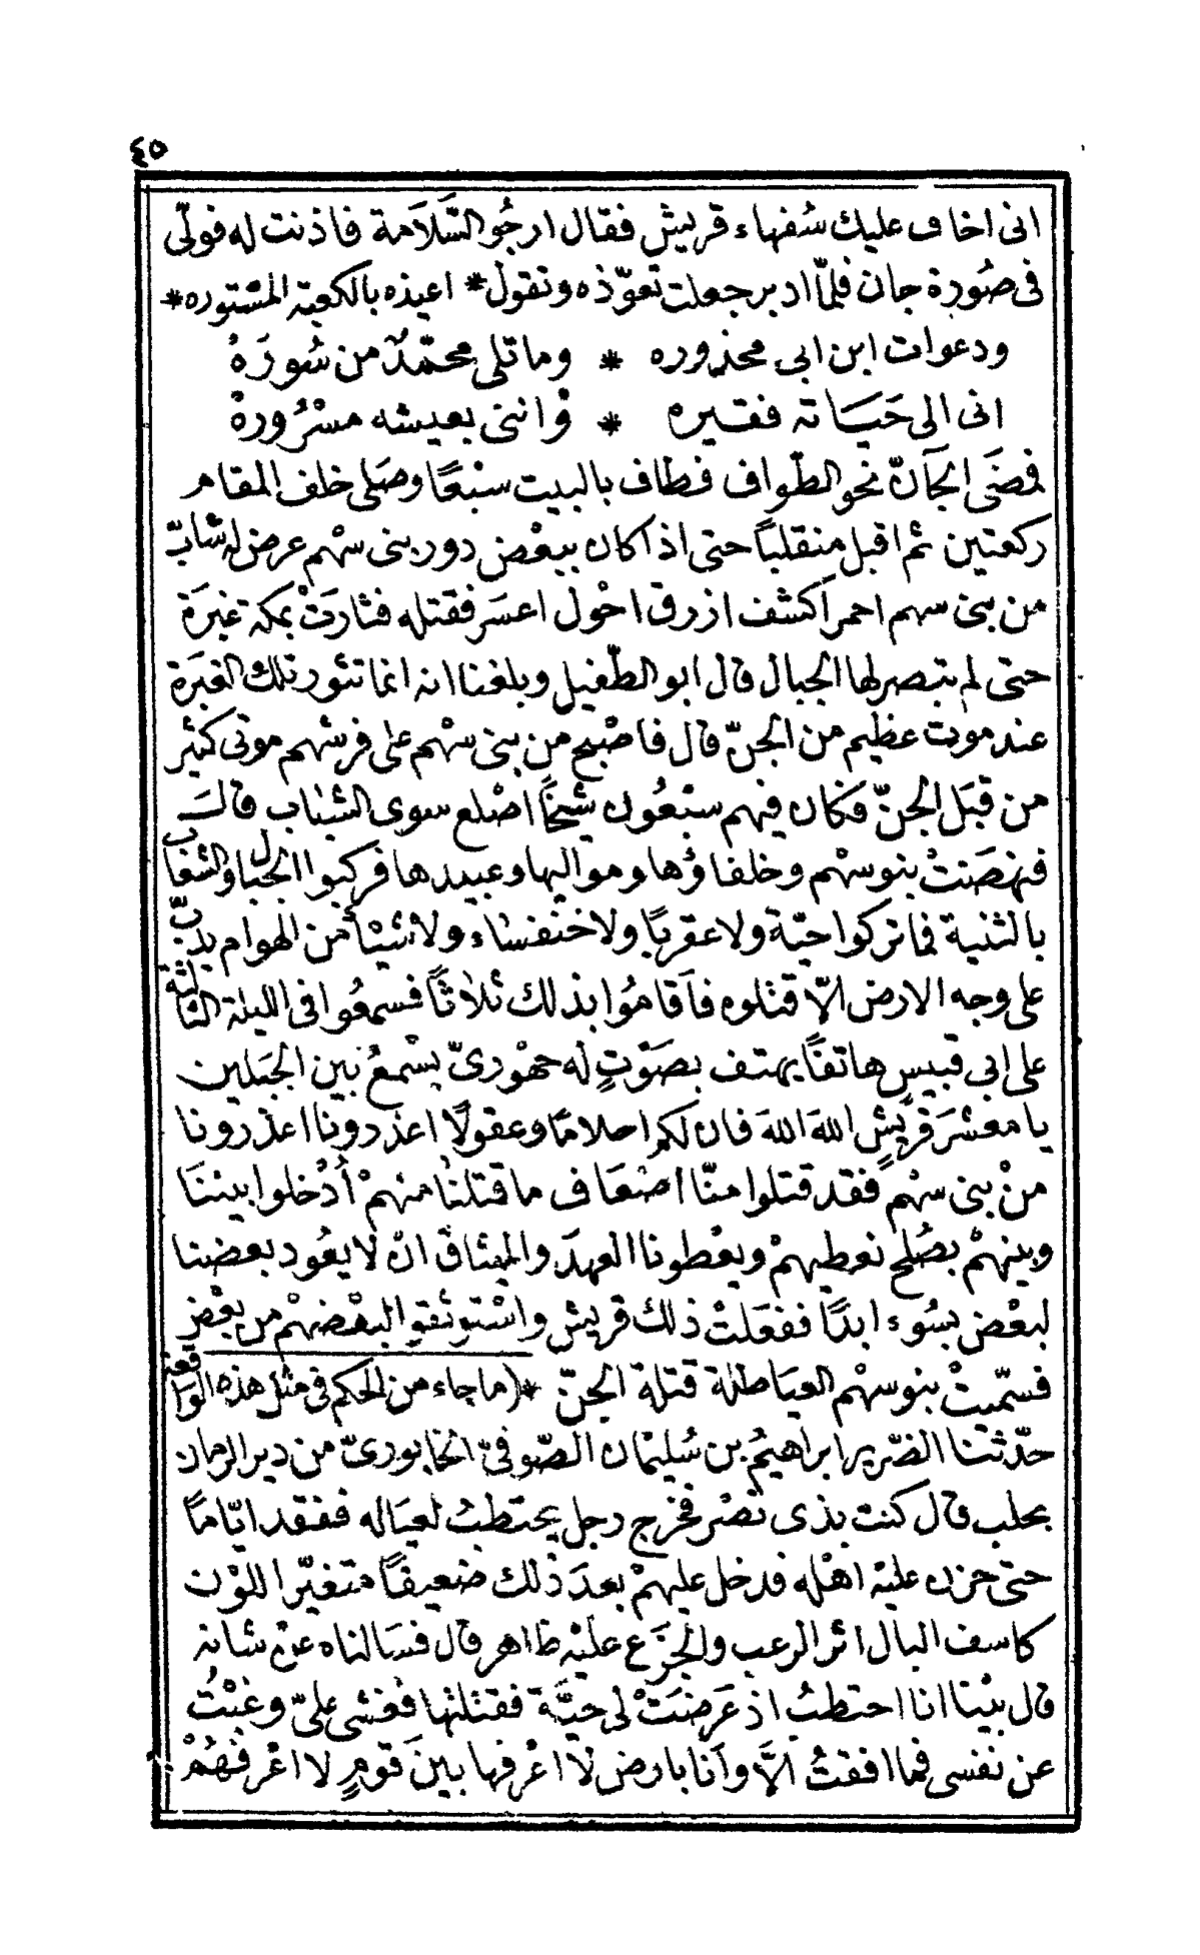 ٤٥
انى اخاف عليك سُفهاء قريش فقال ارجُو السَّلاَمة فاذنت له فولّى
فى صُورة جان فلمّا ادبر جعلت تعوّذه وتقول * اعيذه بالكعبة المستوره *
ودعوات ابن ابى محذوره * وما تلى محمّدٌ من سُورَهْ
انى الى حَيَاته فقيره * وانى بعيشه مسْرُورهْ
فمضَى الجَآنّ نحو الطّواف فطاف بالبيت سبْعًا وصَلى خلف المقام
ركعتين ثم اقبل منقلباً حتى اذا كان ببعْض دور بنى سهْم عرض له شابّ
من بنى سهم احمر اكشف ازرق احْول اعسَر فقتله فثارَتْ بمكة غبَرَة
حتى لم تبصر لها الجبال قال ابو الطّفيل وبلغنا انه انما تثور تلك الغبَرَة
عند موت عظيم من الجنّ قال فاصْبح من بنى سهْم على فرشهم موتى كثير
من قبَل الجنّ وكان فيهم سبْعُون شيخاً اصْلع سوى الشباب قالَ
فنهضَتْ بنو سهْم وخلفاؤها ومواليها وعبيدها فركبوا الجبال والشعاب
بالثنية فما تركوا حيّة ولا عقربًا ولا خنفسَاء ولا شيئاً من الهوام يدبّ
على وجه الارض الاّ قتلوه فاَقامُوا بذلك ثلاثاً فسمعُوا فى الليلة الثالثة
على ابى قبيس هاتفاً يهتف بصَوْتٍ له جهْورىّ يسْمعُ بين الجَبَلين
يا معشرَ قريْشٍ اللهَ اللهَ فان لكم احلامًا وعقولًا اعذرونا اعذرونا
منْ بنى سهْم فقد قتلوا منّا اضعَاف ما قتلنا منهمْ أدْخلوا بيننَا
وبينهمْ بصُلح نعطيهمْ ويعْطونا العهدَ والميثاق انْ لا يعُود بعضنا
لبعْض بسُوء ابدًا ففعَلتْ ذلك قريش واسْتوثقوا لبعْضهمْ من بعْض
فسمّيتْ بنو سهْم الغياطلة قتلة الجنّ * (ما جاء من الحكم فى مثل هذه الواقعة
حدّثتنا الضّرير ابراهيمُ بن سُليمان الصّوفىّ الخابورىّ من دير الرمان
بحلب قال كنت بذى نصْر فخرج رجل يحتطبُ لعيَاله ففقد ايّامًا
حتى حزن عليْه اهْله فدخل عليهمْ بعدَ ذلك ضعيفاً متغيّر اللوْن
كاسف البال اثر الرعب والجزَع عليْه ظاهر قال فسَالناه عنْ شانه
قال بيْنا انا احتطبُ اذ عَرضَتْ لى حيَّة فقتلتها فغشى علىّ وغبْتُ
عن نفسى فما افقتُ الاَّ وأنا بارض لا اعْرفها بينَ قومٍ لا اعْرفهُمْ